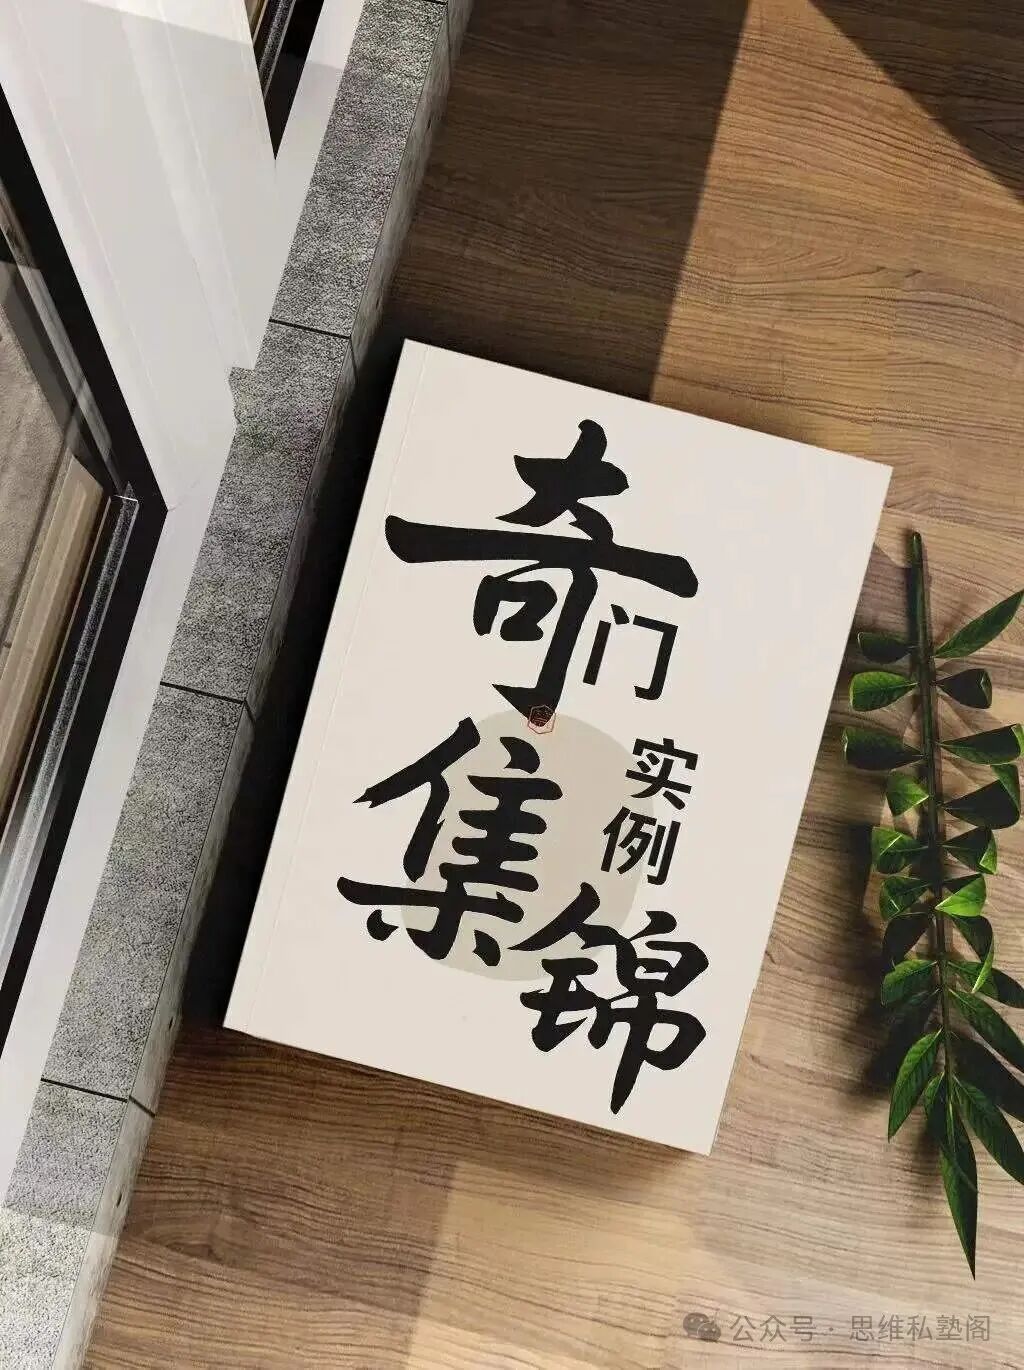 奇门
实例
集锦
公众号 · 思维私塾阁